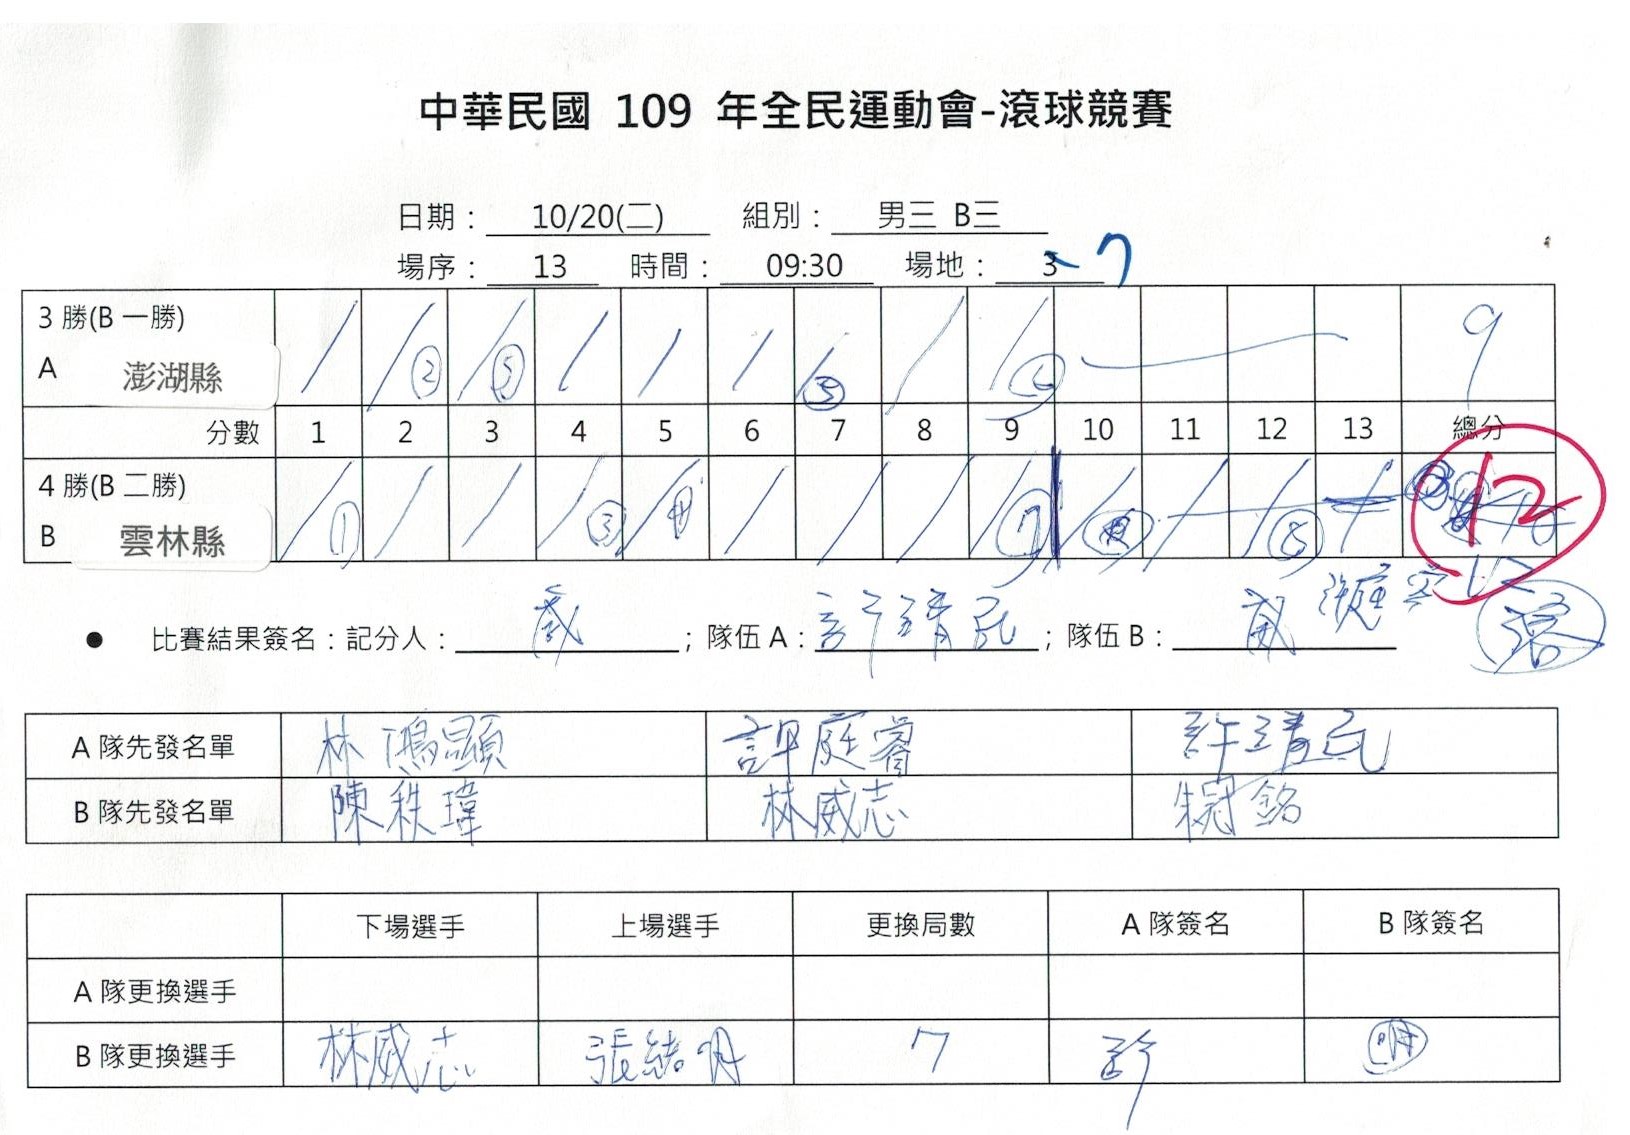 中華民國 109 年全民運動會-滾球競賽
日期： 10/20(二) 組別： 男三 B三
場序： 13 時間： 09:30 場地： 3 7
3 勝(B 一勝)
A 澎湖縣 2 5 9
分數 1 2 3 4 5 6 7 8 9 10 11 12 13 總分
4 勝(B 二勝)
B 雲林縣 1 3 4 7 5 12
● 比賽結果簽名：記分人： 威 ；隊伍 A：許靖民 ；隊伍 B： 威
A 隊先發名單 林鴻顯 許庭睿 許靖民
B 隊先發名單 陳秩瑋 林威志 銘
下場選手 上場選手 更換局數 A 隊簽名 B 隊簽名
A 隊更換選手
B 隊更換選手 林威志 張 7 明